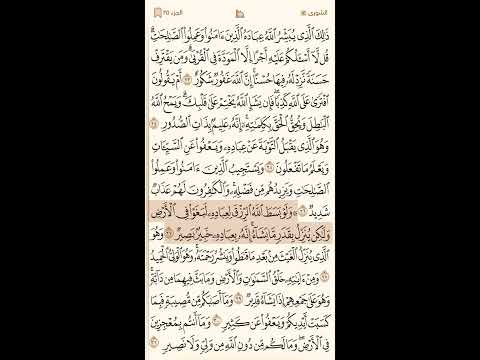 الشورى
الجزء ٢٥
ذَٰلِكَ ٱلَّذِي يُبَشِّرُ ٱللَّهُ عِبَادَهُ ٱلَّذِينَ ءَامَنُوا۟ وَعَمِلُوا۟ ٱلصَّٰلِحَٰتِ ۗ
قُل لَّآ أَسْـَٔلُكُمْ عَلَيْهِ أَجْرًا إِلَّا ٱلْمَوَدَّةَ فِي ٱلْقُرْبَىٰ ۗ وَمَن يَقْتَرِفْ
حَسَنَةً نَّزِدْ لَهُۥ فِيهَا حُسْنًا ۚ إِنَّ ٱللَّهَ غَفُورٌ شَكُورٌ ٢٣ أَمْ يَقُولُونَ
ٱفْتَرَىٰ عَلَى ٱللَّهِ كَذِبًا ۖ فَإِن يَشَإِ ٱللَّهُ يَخْتِمْ عَلَىٰ قَلْبِكَ ۗ وَيَمْحُ ٱللَّهُ
ٱلْبَٰطِلَ وَيُحِقُّ ٱلْحَقَّ بِكَلِمَٰتِهِۦٓ ۚ إِنَّهُۥ عَلِيمٌۢ بِذَاتِ ٱلصُّدُورِ ٢٤
وَهُوَ ٱلَّذِي يَقْبَلُ ٱلتَّوْبَةَ عَنْ عِبَادِهِۦ وَيَعْفُوا۟ عَنِ ٱلسَّيِّـَٔاتِ
وَيَعْلَمُ مَا تَفْعَلُونَ ٢٥ وَيَسْتَجِيبُ ٱلَّذِينَ ءَامَنُوا۟ وَعَمِلُوا۟
ٱلصَّٰلِحَٰتِ وَيَزِيدُهُم مِّن فَضْلِهِۦ ۚ وَٱلْكَٰفِرُونَ لَهُمْ عَذَابٌ
شَدِيدٌ ٢٦ وَلَوْ بَسَطَ ٱللَّهُ ٱلرِّزْقَ لِعِبَادِهِۦ لَبَغَوْا۟ فِي ٱلْأَرْضِ
وَلَٰكِن يُنَزِّلُ بِقَدَرٍ مَّا يَشَآءُ ۚ إِنَّهُۥ بِعِبَادِهِۦ خَبِيرٌۢ بَصِيرٌ ٢٧ وَهُوَ
ٱلَّذِي يُنَزِّلُ ٱلْغَيْثَ مِنۢ بَعْدِ مَا قَنَطُوا۟ وَيَنشُرُ رَحْمَتَهُۥ ۚ وَهُوَ ٱلْوَلِيُّ ٱلْحَمِيدُ
٢٨ وَمِنْ ءَايَٰتِهِۦ خَلْقُ ٱلسَّمَٰوَٰتِ وَٱلْأَرْضِ وَمَا بَثَّ فِيهِمَا مِن دَآبَّةٍ ۚ
وَهُوَ عَلَىٰ جَمْعِهِمْ إِذَا يَشَآءُ قَدِيرٌ ٢٩ وَمَآ أَصَٰبَكُم مِّن مُّصِيبَةٍ فَبِمَا
كَسَبَتْ أَيْدِيكُمْ وَيَعْفُوا۟ عَن كَثِيرٍ ٣٠ وَمَآ أَنتُم بِمُعْجِزِينَ
فِي ٱلْأَرْضِ ۖ وَمَا لَكُم مِّن دُونِ ٱللَّهِ مِن وَلِيٍّ وَلَا نَصِيرٍ ٣١